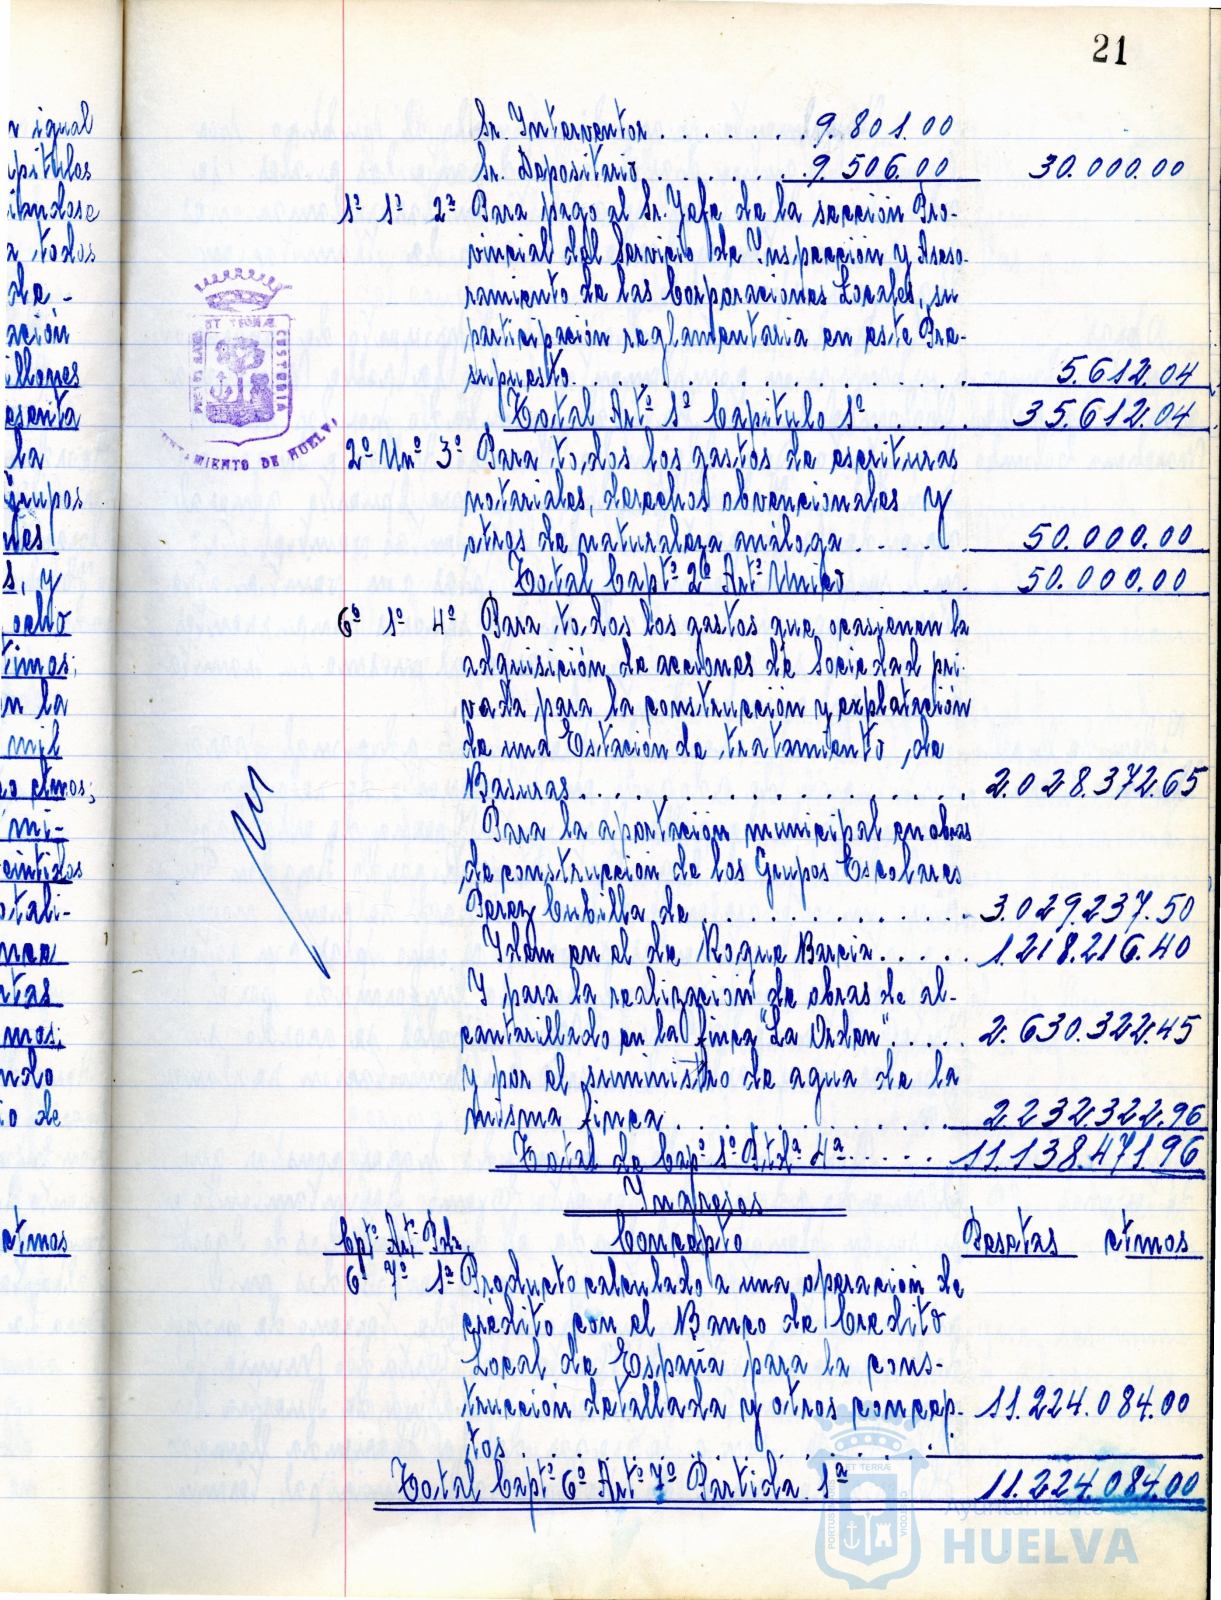 21
Sr. Interventor . . . . . . 9.801.00
Sr. Depositario . . . . . . 9.506.00 30.000.00
1º 1º 2ª Para pago al Sr. Jefe de la sección Pro-
vincial del Servicio de Inspección y Aseso-
ramiento de las Corporaciones Locales, su
participación reglamentaria en este Pre-
supuesto. . . . . . . . . . . . 5.612.04
Total Artº 1º Capitulo 1º . . . . . 35.612.04
2º Unº 3ª Para todos los gastos de escrituras
notariales, derechos obvencionales y
otros de naturaleza análoga . . . . . 50.000.00
Total Captº 2º Artº Unico . . . . 50.000.00
6º 1º 4ª Para todos los gastos que ocasionen la
adquisición de acciones de Sociedad pri-
vada para la construcción y explotación
de una Estación de tratamiento de
Basuras. . . . . . . . . . . . 2.028.372.65
Para la aportación municipal en obras
de construcción de los Grupos Escolares
Perez Cubilla de . . . . . . . . . 3.029.237.50
Idem en el de Roque Barcia . . . . . 1.218.216.40
Y para la realización de obras de al-
cantarillado en la finca "La Orden" . . . . . 2.630.322.45
y por el suministro de agua de la
misma finca . . . . . . . . . . 2.232.322.96
Total de Capº 1º Ptdª 4ª . . . . . 11.138.471.96
Ingresos
Cptº Artº Pda Concepto Pesetas ctmos
6º 7º 1ª Producto calculado a una operación de
crédito con el Banco de Credito
Local de España para la cons-
trucción detallada y otros concep- 11.224.084.00
tos . . . . . . . . . .
Total Captº 6º Artº 7º Partida 1ª 11.224.084.00
n igual
todos
de -
ación
illones
la
grupos
s, y
ocho
timos;
n la
mil
mi-
otali-
ntas
mos;
ndo
io de
ctmos
AYUNTAMIENTO DE HUELVA
Ayuntamiento de
HUELVA